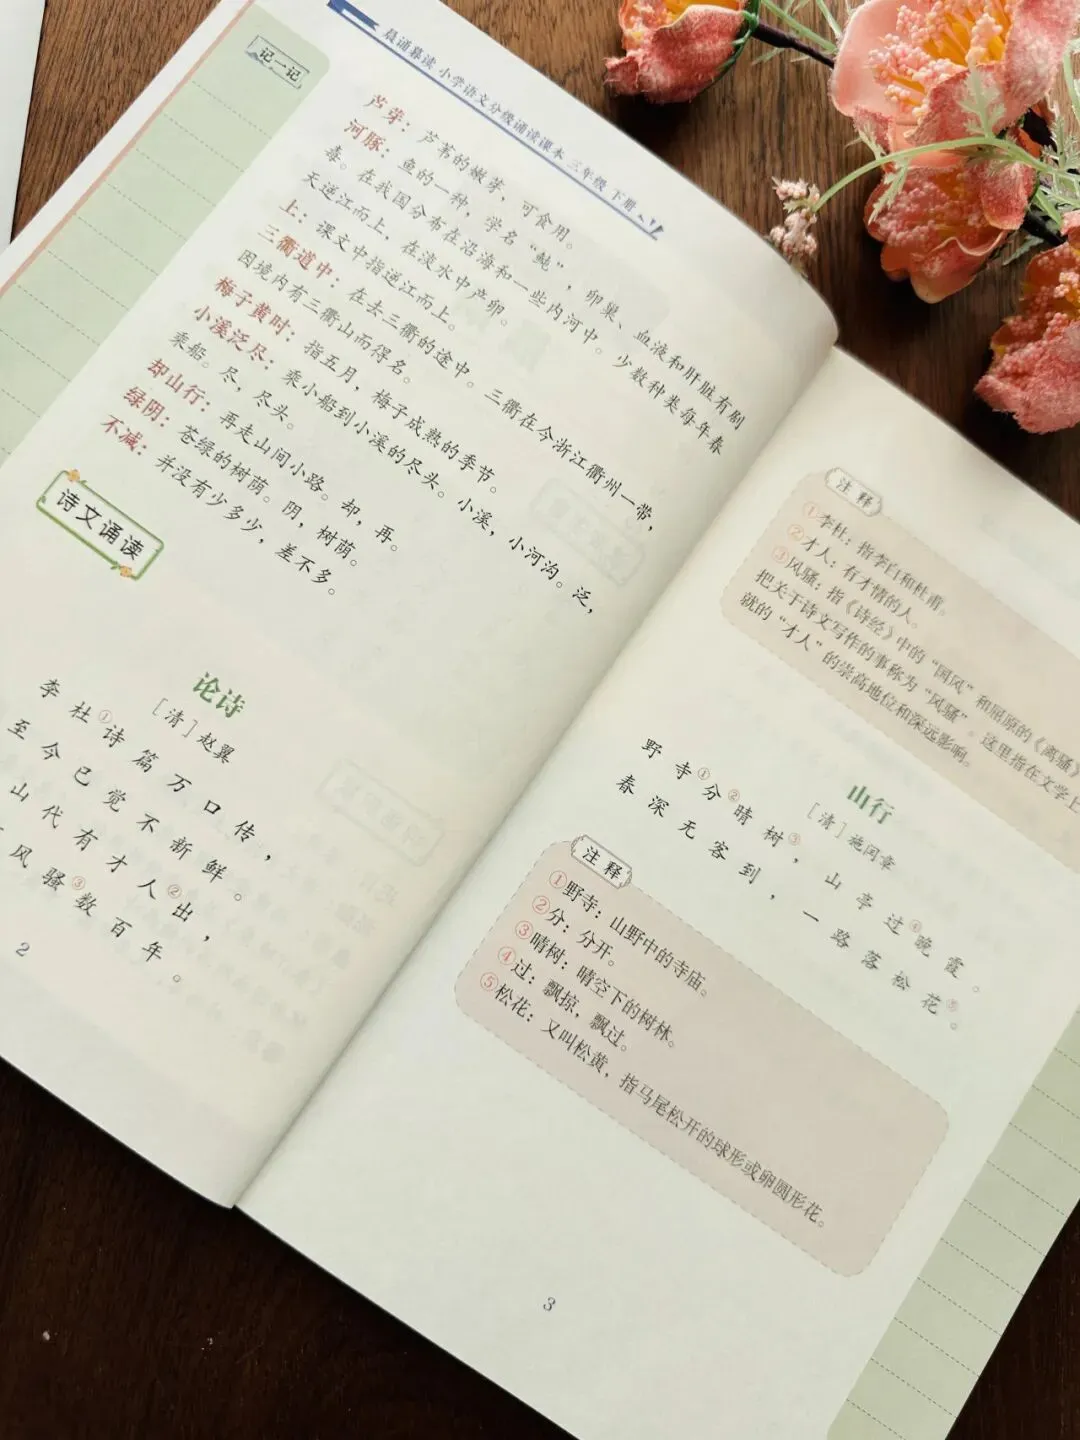 晨诵暮读 小学语文分级诵读课本 三年级 下册
记一记
芦芽：芦苇的嫩芽，可食用。
河豚：鱼的一种，学名“鲀”，卵巢、血液和肝脏有剧
毒。在我国分布在沿海和一些内河中。少数种类每年春
天逆江而上，在淡水中产卵。
上：课文中指逆江而上。
三衢道中：在去三衢的途中。三衢在今浙江衢州一带，
因境内有三衢山而得名。
梅子黄时：指五月，梅子成熟的季节。
小溪泛尽：乘小船到小溪的尽头。小溪，小河沟。泛，
乘船。尽，尽头。
却山行：再走山间小路。却，再。
绿阴：苍绿的树荫。阴，树荫。
不减：并没有少多少，差不多。
诗文诵读
论诗
［清］赵翼
李杜①诗篇万口传，
至今已觉不新鲜。
山代有才人②出，
风骚③数百年。
2
注释
①李杜：指李白和杜甫。
②才人：有才情的人。
③风骚：指《诗经》中的“国风”和屈原的《离骚》
把关于诗文写作的事称为“风骚”。这里指在文学上
就的“才人”的崇高地位和深远影响。
山行
［清］施闰章
野寺①分②晴树③，山亭过④晚霞。
春深无客到，一路落松花⑤。
注释
①野寺：山野中的寺庙。
②分：分开。
③晴树：晴空下的树林。
④过：飘掠，飘过。
⑤松花：又叫松黄，指马尾松开的球形或卵圆形花。
3